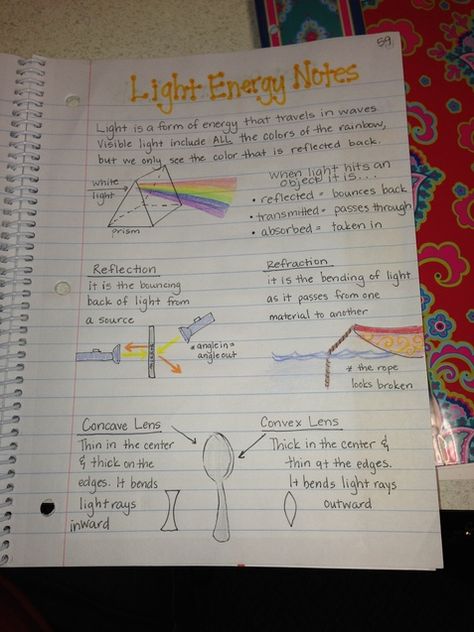 59
Light Energy Notes
Light is a form of energy that travels in waves
Visible light include ALL the colors of the rainbow,
but we only see the color that is reflected back.
white
light
prism
When light hits an
object it is...
• reflected = bounces back
• transmitted = passes through
• absorbed = taken in
Reflection
it is the bouncing
back of light from
a source
mirror
* angle in =
angle out
Refraction
it is the bending of light
as it passes from one
material to another
* the rope
looks broken
Concave Lens
Thin in the center
& thick on the
edges. It bends
light rays
inward
Convex Lens
Thick in the center &
thin at the edges.
It bends light rays
outward